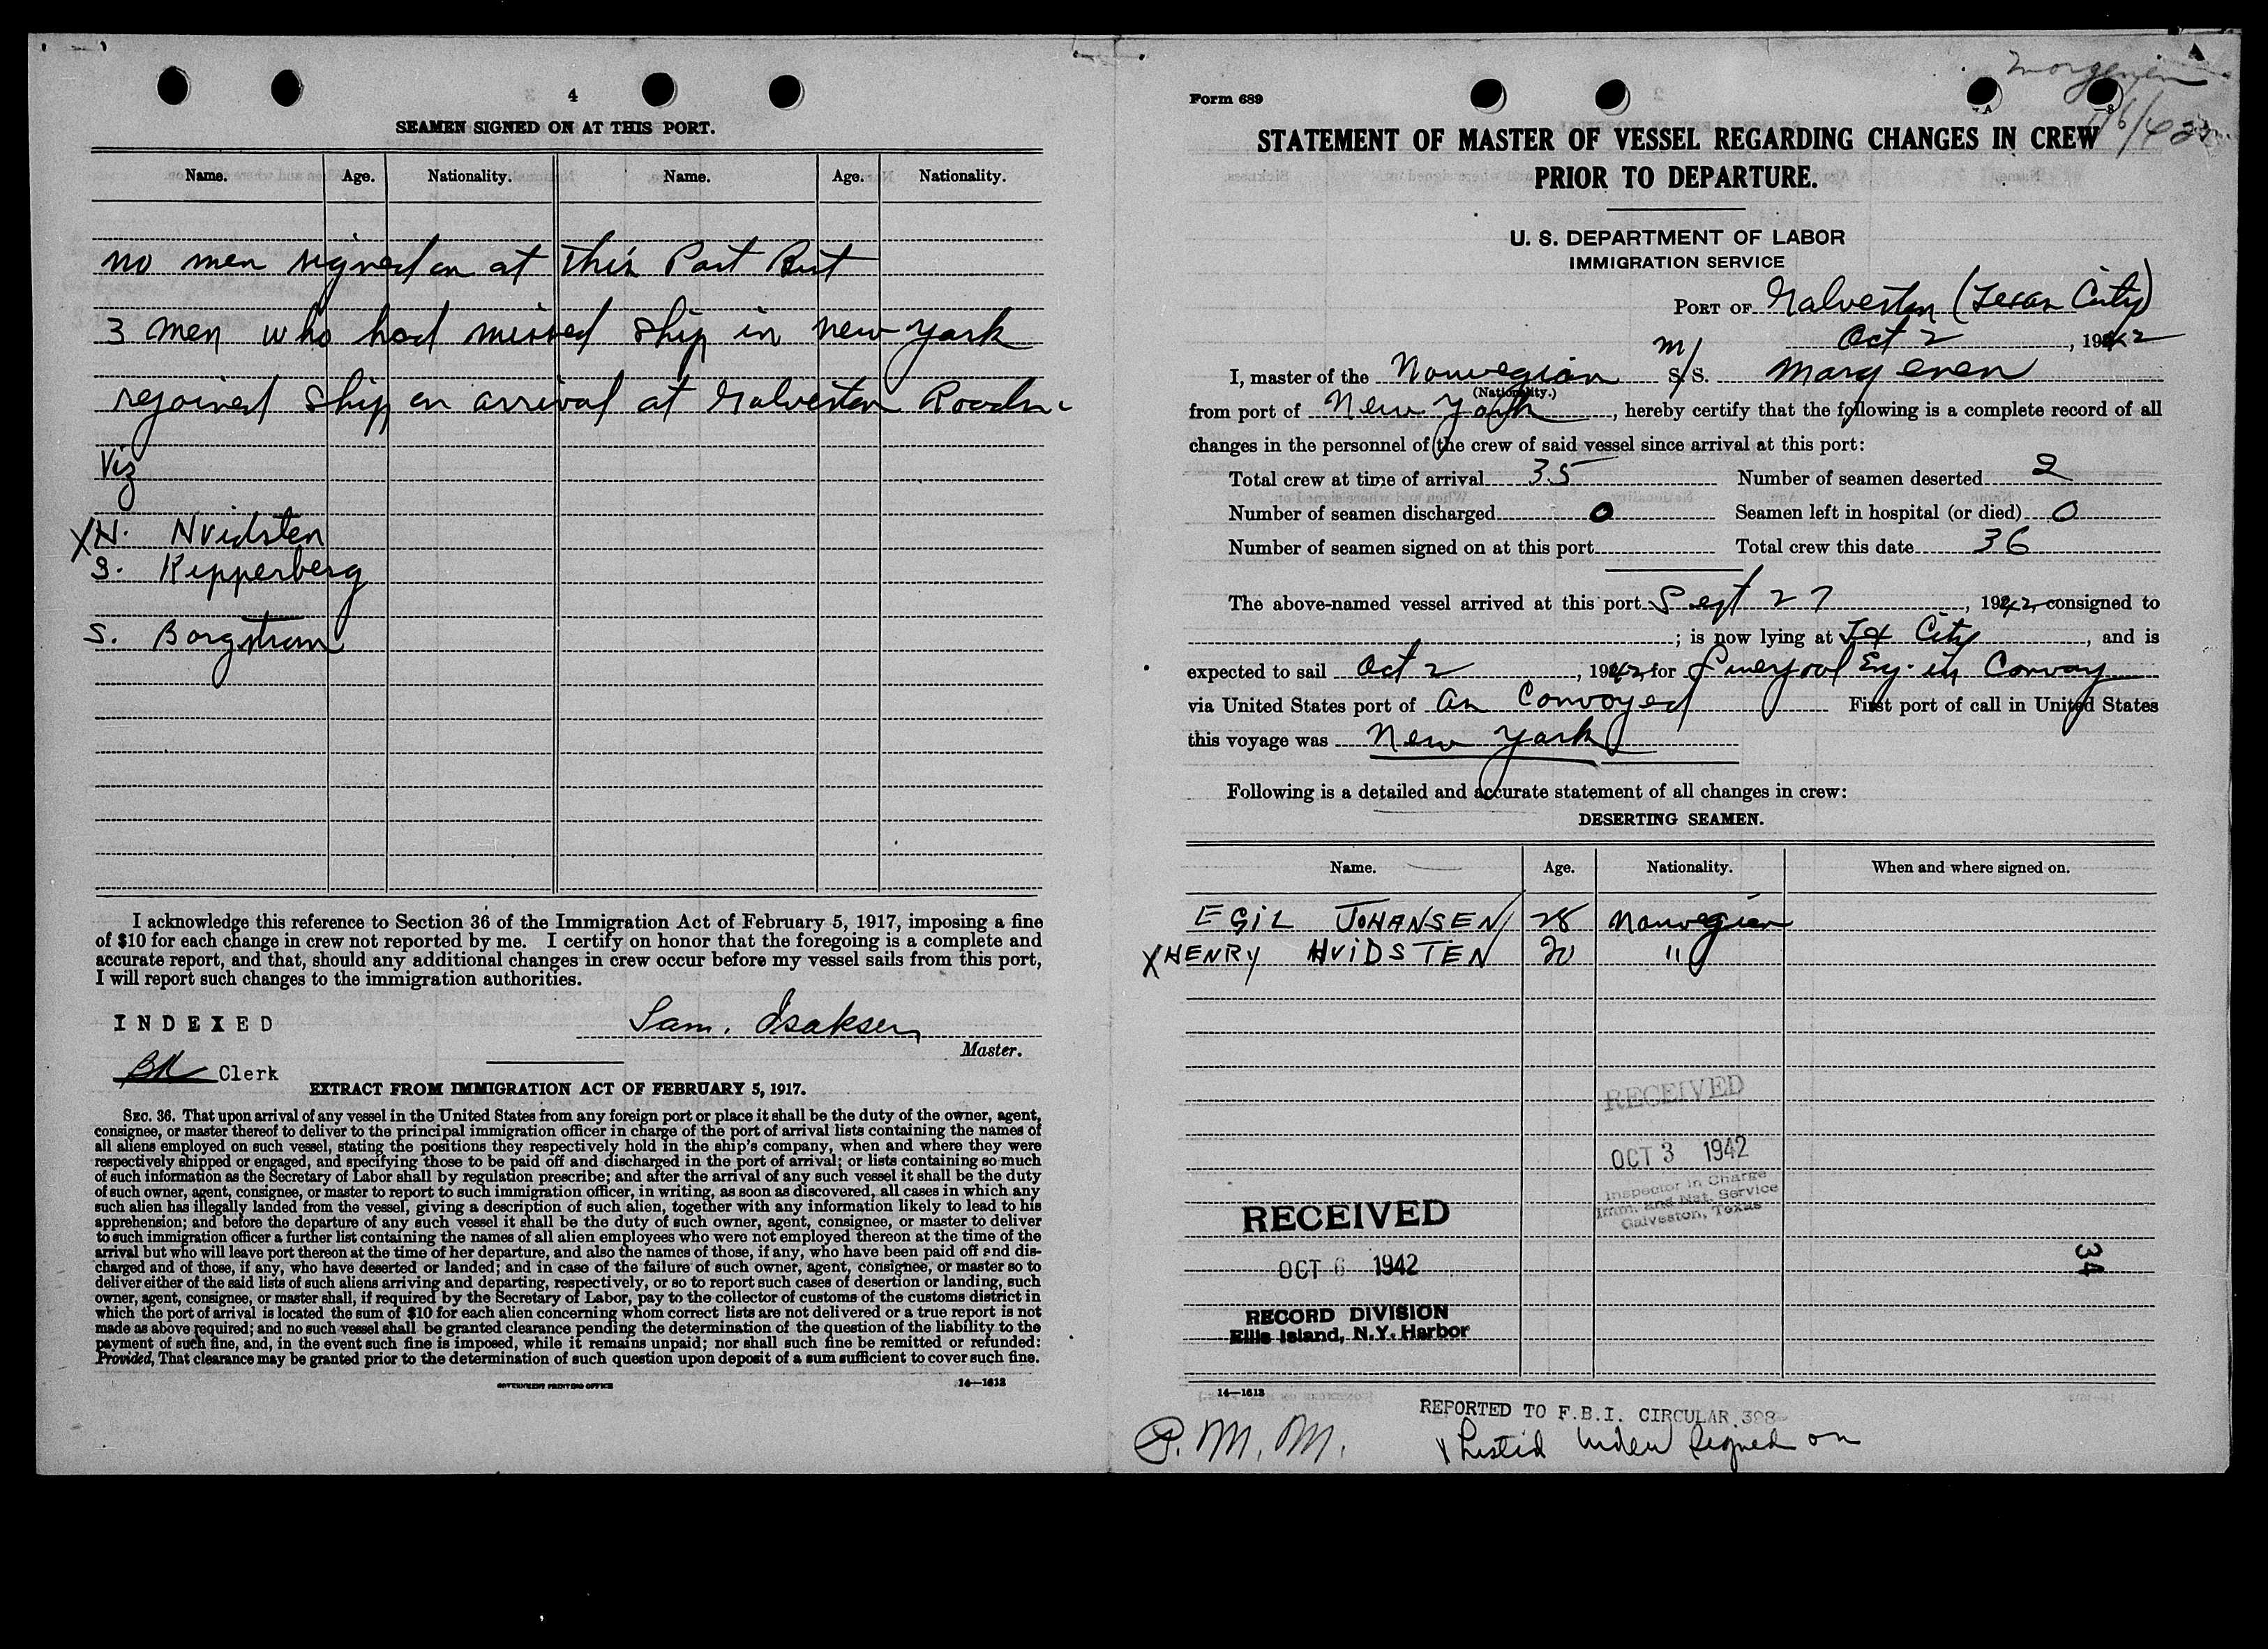 4
SEAMEN SIGNED ON AT THIS PORT.
Name. Age. Nationality. Name. Age. Nationality.
no men signed on at This Port But
3 men who had missed ship in new york
rejoined ship on arrival at Galveston Roads
Viz
X H. Hvidsten
S. Kipperberg
S. Borgstrom
I acknowledge this reference to Section 36 of the Immigration Act of February 5, 1917, imposing a fine
of $10 for each change in crew not reported by me. I certify on honor that the foregoing is a complete and
accurate report, and that, should any additional changes in crew occur before my vessel sails from this port,
I will report such changes to the immigration authorities.
INDEXED
Sam. Isaksen
Master.
BK Clerk
EXTRACT FROM IMMIGRATION ACT OF FEBRUARY 5, 1917.
SEC. 36. That upon arrival of any vessel in the United States from any foreign port or place it shall be the duty of the owner, agent,
consignee, or master thereof to deliver to the principal immigration officer in charge of the port of arrival lists containing the names of
all aliens employed on such vessel, stating the positions they respectively hold in the ship's company, when and where they were
respectively shipped or engaged, and specifying those to be paid off and discharged in the port of arrival; or lists containing so much
of such information as the Secretary of Labor shall by regulation prescribe; and after the arrival of any such vessel it shall be the duty
of such owner, agent, consignee, or master to report to such immigration officer, in writing, as soon as discovered, all cases in which any
such alien has illegally landed from the vessel, giving a description of such alien, together with any information likely to lead to his
apprehension; and before the departure of any such vessel it shall be the duty of such owner, agent, consignee, or master to deliver
to such immigration officer a further list containing the names of all alien employees who were not employed thereon at the time of the
arrival but who will leave port thereon at the time of her departure, and also the names of those, if any, who have been paid off and dis-
charged and of those, if any, who have deserted or landed; and in case of the failure of such owner, agent, consignee, or master so to
deliver either of the said lists of such aliens arriving and departing, respectively, or so to report such cases of desertion or landing, such
owner, agent, consignee, or master shall, if required by the Secretary of Labor, pay to the collector of customs of the customs district in
which the port of arrival is located the sum of $10 for each alien concerning whom correct lists are not delivered or a true report is not
made as above required; and no such vessel shall be granted clearance pending the determination of the question of the liability to the
payment of such fine, and, in the event such fine is imposed, while it remains unpaid; nor shall such fine be remitted or refunded:
Provided, That clearance may be granted prior to the determination of such question upon deposit of a sum sufficient to cover such fine.
GOVERNMENT PRINTING OFFICE 14—1613
Form 689
STATEMENT OF MASTER OF VESSEL REGARDING CHANGES IN CREW
PRIOR TO DEPARTURE.
U. S. DEPARTMENT OF LABOR
IMMIGRATION SERVICE
PORT OF Galveston (Texas City)
Oct 2, 1942
I, master of the Norwegian M/S. Morgenen
(Nationality.)
from port of New York, hereby certify that the following is a complete record of all
changes in the personnel of the crew of said vessel since arrival at this port:
Total crew at time of arrival 35 Number of seamen deserted 2
Number of seamen discharged 0 Seamen left in hospital (or died) 0
Number of seamen signed on at this port Total crew this date 36
The above-named vessel arrived at this port Sept 27, 1942, consigned to
; is now lying at Tex City, and is
expected to sail Oct 2, 1942, for Liverpool Eng. in Convoy
via United States port of as Convoyed First port of call in United States
this voyage was New York
Following is a detailed and accurate statement of all changes in crew:
DESERTING SEAMEN.
Name. Age. Nationality. When and where signed on.
EGIL JOHANSEN 28 Norwegian
X HENRY HVIDSTEN 20 "
RECEIVED
OCT 3 1942
Inspector in Charge
Imm. and Nat. Service
Galveston, Texas
RECEIVED
OCT 6 1942
RECORD DIVISION
Ellis Island, N.Y. Harbor
34
14—1613
REPORTED TO F.B.I. CIRCULAR 398
P. M. M.
x Listed under signed on